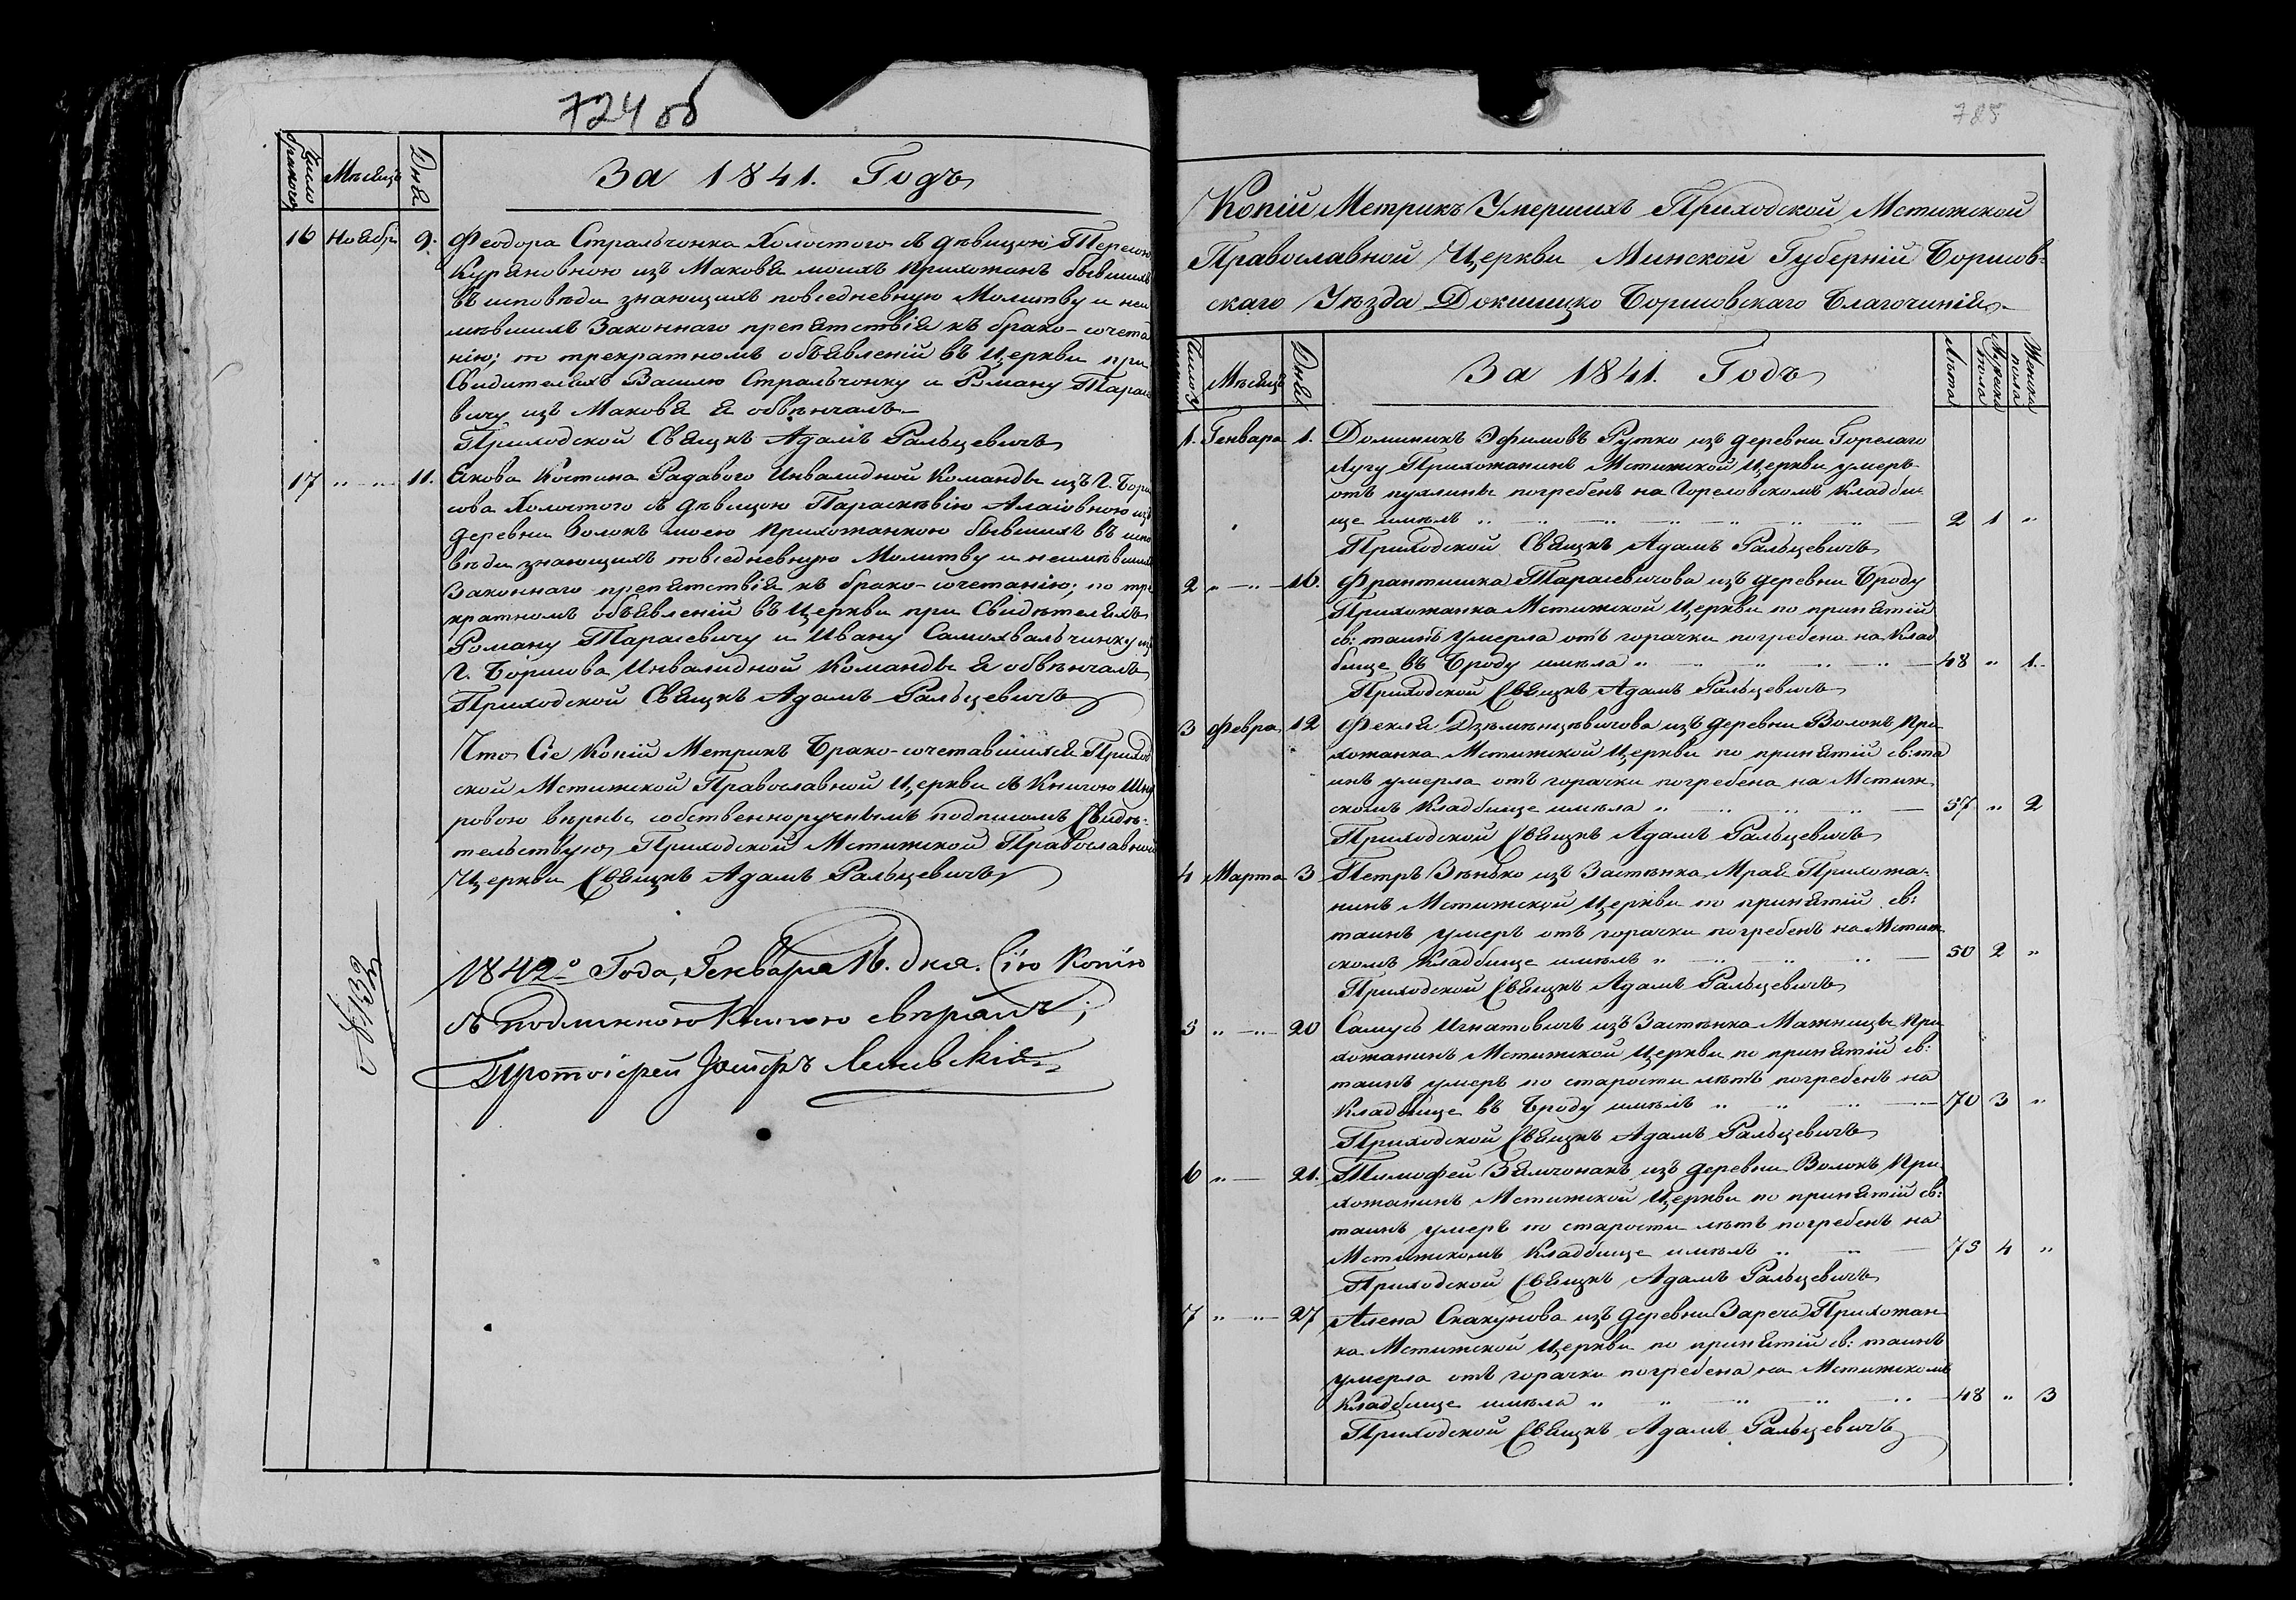 724 об
Число бракого
Мѣсяцъ
Дня
За 1841. Годъ
16 Ноябр. 9. Феодора Стральчонка Холостого съ дѣвицою Тересою
Куряновною изъ Маковя моихъ прихожанъ бывшихъ
въ исповѣди знающихъ повседневную Молитву и неи
мѣвшихъ Законнаго препятствія къ брако-сочета
нію; по трекратномъ объявленій въ Церкви при
Свидителяхъ Василю Стральчонку и Роману Тарасе
вичу изъ Маковя я обвѣнчалъ
Приходской Свящкъ Адамъ Ральцевичъ
17 „ — „ 11. Якова Костина Радавого Инвалидной Команды изъ Г. Бори
сова Холостого съ дѣвицою Параскѣвію Алаіовною изъ
деревни Волокъ моею прихожанкою бывшихъ въ испо
вѣди знающихъ повседневную Молитву и неимѣвшихъ
Законнаго препятствія къ брако-сочетанію; по тре
кратномъ объявленій въ Церкви при Свидѣтеляхъ
Роману Тарасевичу и Ивану Самохвальчинку изъ
Г. Борисова Инвалидной Команды я обвѣнчалъ
Приходской Свящкъ Адамъ Ральцевичъ
Что Сіе Копій Метрикъ Брако-сочетавшихся Приход
ской Мстижской Православной Церкви съ Книгою Шну
ровою вѣрны собственноручнымъ подписомъ Свидѣ-
тельствую Приходской Мстижской Православной
Церкви Свящкъ Адамъ Ральцевичъ
1842о Года, Генваря 16. дня. Сію Копію
съ подлинною Книгою свѣрялъ;
Протоіерей Іосифъ
785
Копій Метрикъ Умершихъ Приходской Мстижской
Православной Церкви Минской Губерній Борисов-
скаго Уѣзда Докшицко Борисовскаго Благочинія
Число
Мѣсяцъ
Дни
За 1841. Годъ
Лѣта
Мужеска пола
Женска пола
1. Генваря 1. Доминикъ Эфимовъ Рутко изъ деревни Горелаго
Лугу Прихожанинъ Мстижской Церкви умеръ
отъ пухлины погребенъ на Гореловскомъ Кладби
ще имѣлъ „ — „ — 2 1 „
Приходской Свящкъ Адамъ Ральцевичъ
2 „ — „ 16. Франтишка Тарасевичова изъ деревни Броду
Прихожанка Мстижской Церкви по принятій
св: таинъ умерла отъ горачки погребена на Клад
бище въ Броду имѣла „ — „ — 48 „ 1.
Приходской Свящкъ Адамъ Ральцевичъ
3 Февра. 12 Фекля Дземѣнцѣвичова изъ деревни Волокъ При
хожанка Мстижской Церкви по принятій св: та
инъ умерла отъ горачки погребена на Мстиж
скомъ Кладбище имѣла „ — „ — 57 „ 2
Приходской Свящкъ Адамъ Ральцевичъ
4 Марта 3 Петръ Зѣнько изъ Застѣнка Мрая Прихожа-
нинъ Мстижской Церкви по принятій св:
таинъ умеръ отъ горачки погребенъ на Мстиж
скомъ Кладбище имѣлъ „ — „ — 50 2 „
Приходской Свящкъ Адамъ Ральцевичъ
5 „ — „ 20 Самусь Игнатовичъ изъ Застѣнка Мажницы При
хожанинъ Мстижской Церкви по принятій св:
таинъ умеръ по старости лѣтъ погребенъ на
Кладбище въ Броду имѣлъ „ — „ — 70 3 „
Приходской Свящкъ Адамъ Ральцевичъ
6 „ — 21. Тимофей Зямчонакъ изъ деревни Волокъ При
хожанинъ Мстижской Церкви по принятій св:
таинъ умеръ по старости лѣтъ погребенъ на
Мстижскомъ Кладбище имѣлъ „ — 75 4 „
Приходской Свящкъ Адамъ Ральцевичъ
7 „ — „ 27 Алена Скакунова изъ деревни Зареча Прихожан
ка Мстижской Церкви по принятій св: таинъ
умерла отъ горачки погребена на Мстижскомъ
Кладбище имѣла „ — „ — 48 „ 3
Приходской Свящкъ Адамъ Ральцевичъ